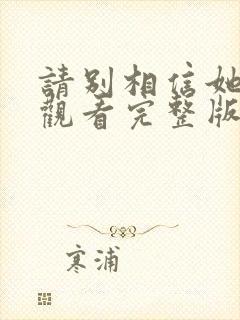 請別相信她
觀看完整版
寒浦